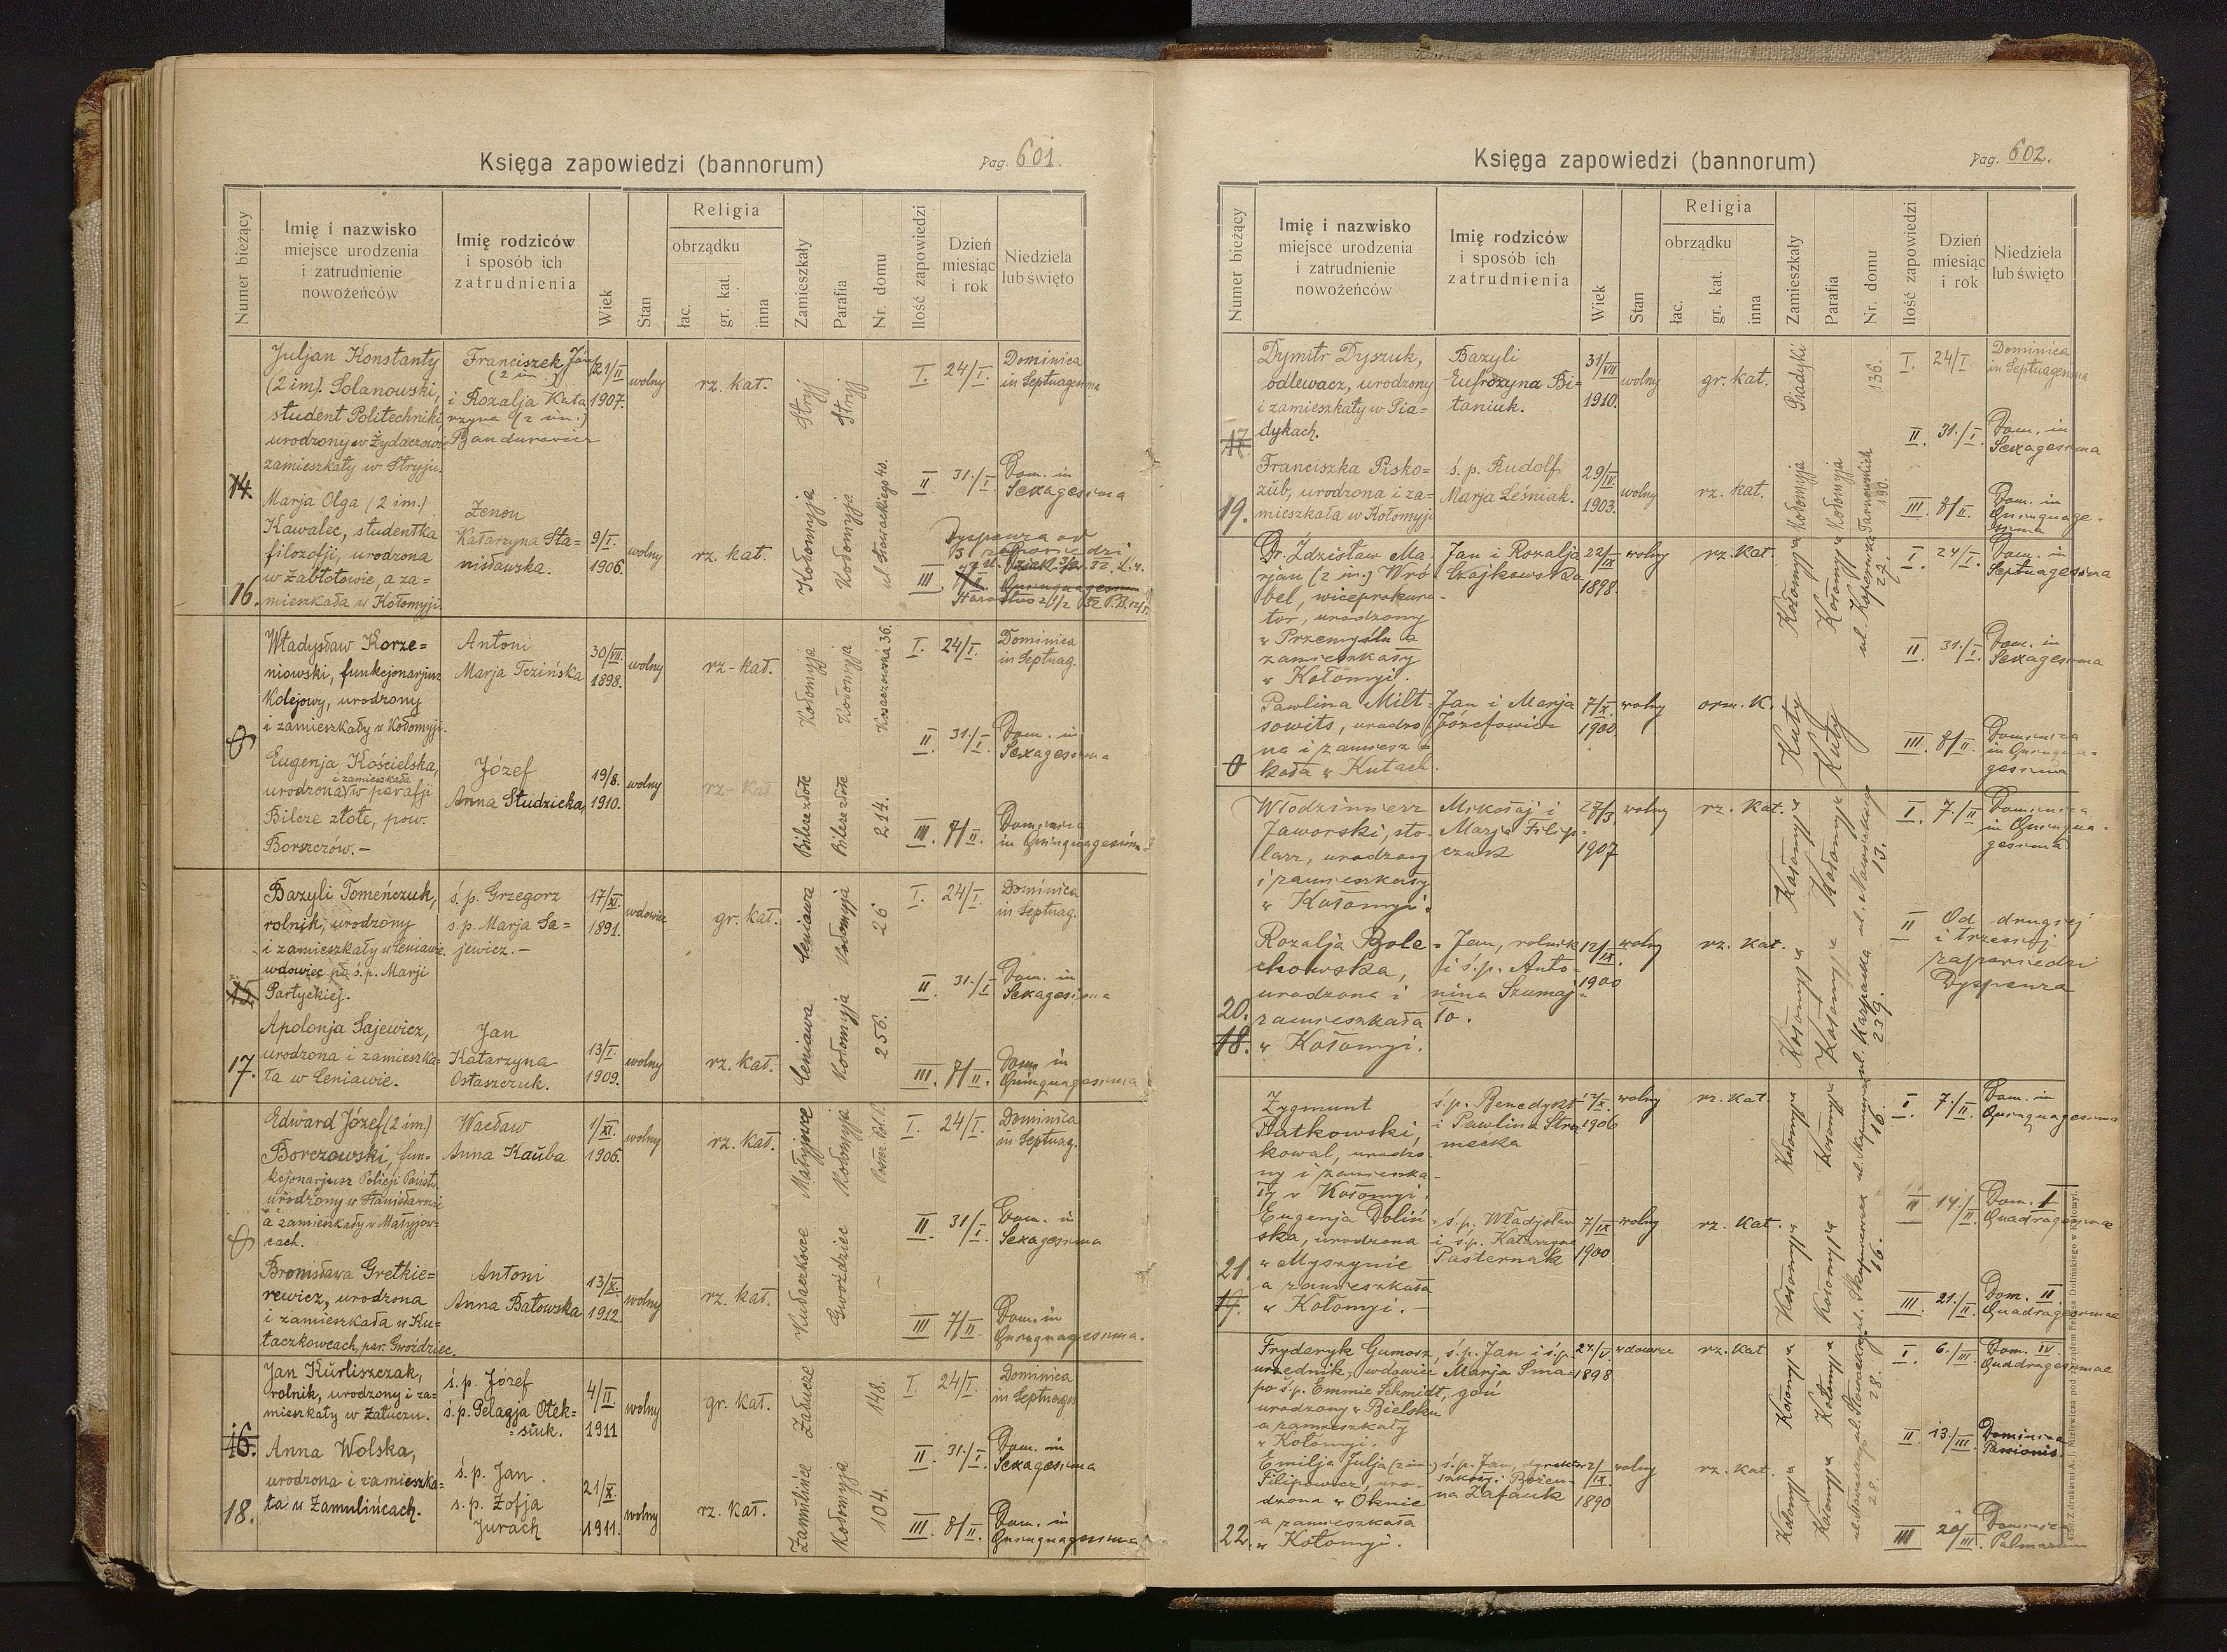 Księga zapowiedzi (bannorum)
Pag. 601.
Numer bieżący
Imię i nazwisko
miejsce urodzenia
i zatrudnienie
nowożeńców
Imię rodziców
i sposób ich
zatrudnienia
Wiek
Stan
Religia
obrządku
łac.
gr. kat.
inna
Zamieszkały
Parafia
Nr. domu
Ilość zapowiedzi
Dzień
miesiąc
i rok
Niedziela
lub święto
14.
16.
Juljan Konstanty
(2 im). Solanowski,
student Politechniki,
urodzony w Żydaczowie
zamieszkały w Stryju.
Franciszek Józef
(2 im.)
i Rozalja Kata
rzyna (2 im.)
Bandurowicz
21/II
1907.
wolny
rz. kat.
Stryj
Stryj
I. 24/I. Dominica
in Septuagesima
II. 31./I. Dom. in
Sexagesima
Marja Olga (2 im.)
Kawalec, studentka
filozofji, urodzona
w Zabłotowie, a za=
mieszkała w Kołomyji
Zenon
Katarzyna Sta=
nisławska.
9/I.
1906.
wolny
rz. kat.
Kołomyja
Kołomyja
ul Słowackiego 40.
Dyspenza od
III zapowiedzi
III 7/II. Quinquagesima
Władysław Korze=
niowski, funkcjonarjusz
kolejowy, urodzony
i zamieszkały w Kołomyji.
Antoni
Marja Tezińska
30/VII.
1898.
wolny
rz-kat.
Kołomyja
Kołomyja
36.
I. 24/I. Dominica
in Septuag.
II. 31./I. Dom. in
Sexagesima
Eugenja Kościelska,
i zamieszkała
urodzona w parafji
Bilcze złote, pow.
Borszczów.-
Józef
Anna Studzicka,
19/8.
1910.
wolny
rz-kat.
Bilcze złote
Bilcze złote
214.
III. 7/II. Dominica
in Quinquagesima
15
17.
Bazyli Tomeńczuk,
rolnik, urodzony
i zamieszkały w Ceniawie.
wdowiec po ś.p. Marji
Partyckiej.
ś.p. Grzegorz
ś.p. Marja Sa=
jewicz.-
17/XI.
1891.
wdowiec
gr. kat.
Ceniawa
Kołomyja
26
I. 24/I. Dominica
in Septuag.
II. 31./I. Dom. in
Sexagesima
Apolonja Sajewicz,
urodzona i zamieszka=
ła w Ceniawie.
Jan
Katarzyna
Ostaszczuk.
13/I.
1909.
wolny
rz. kat.
Ceniawa
Kołomyja
256.
III. 7/II. Dom. in
Quinquagesima
Edward Józef (2 im)
Borczowski, fun=
kcjonarjusz Policji Państw.
urodzony w Stanisławowie
a zamieszkały w Matyjow=
cach.
Wacław
Anna Kauba
1/XI.
1906.
wolny
rz. kat.
Matyjowce
Kołomyja
I. 24/I. Dominica
in Septuag.
II. 31/I. Dom. in
Sexagesima
Bronisława Gretkie=
rewicz, urodzona
i zamieszkała w Ku=
łaczkowcach, par. Gwoździec.
Antoni
Anna Batowska
13/X.
1912.
wolny
rz. kat.
Kułaczkowce
Gwoździec
III 7/II. Dom. in
Quinquagesima.
16.
18.
Jan Kurliszczak,
rolnik, urodzony i za=
mieszkały w Załuczu.
ś.p. Józef
ś.p. Pelagja Olek=
siuk.
4/II.
1911
wolny
gr. kat.
Załucze
148.
I. 24/I. Dominica
in Septuages
II. 31./I. Dom. in
Sexagesima
Anna Wolska,
urodzona i zamieszka=
ła w Zamulińcach.
ś.p. Jan.
ś.p. Zofja
Jurach
21/X.
1911.
wolny
rz. kat.
Zamulińce
Kołomyja
104.
III. 8/II. Dom. in
Quinquagesima
Księga zapowiedzi (bannorum)
Pag. 602.
Numer bieżący
Imię i nazwisko
miejsce urodzenia
i zatrudnienie
nowożeńców
Imię rodziców
i sposób ich
zatrudnienia
Wiek
Stan
Religia
obrządku
łac.
gr. kat.
inna
Zamieszkały
Parafia
Nr. domu
Ilość zapowiedzi
Dzień
miesiąc
i rok
Niedziela
lub święto
17.
19.
Dymitr Dyszuk,
odlewacz, urodzony
i zamieszkały w Pia=
dykach.
Bazyli
Eufrozyna Bi=
taniuk.
31/VII
1910.
wolny
gr. kat.
Piadyki
136.
I. 24/I. Dominica
in Septuagesima
II. 31./I. Dom. in
Sexagesima
Franciszka Pisko=
zub, urodzona i za=
mieszkała w Kołomyji
ś.p. Rudolf
Marja Leśniak.
29/IV.
1903.
wolny
rz. kat.
Kołomyja
Kołomyja
Tarnowskich
190.
III. 8/II. Dom. in
Quinquage-
sima
Dr. Zdzisław Ma
rjan (2 im.) Wró
bel, wiceprokura-
tor, urodzony
w Przemyślu a
zamieszkały
w Kołomyi.
Jan i Rozalja
Czajkowska
22/IX
1898.
wolny
rz. kat.
Kołomyja
Kołomyja
ul. Kopernika
27.
I. 24/I. Dom. in
Septuagesima
II. 31./I. Dom. in
Sexagesima
Pawlina Milt-
sowits, urodzo
na i zamiesz=
kała w Kutach.
Jan i Marja
Józefowicz
7/X.
1900.
wolny
orm. K.
Kuty
Kuty
III. 8/II. Dominica
in Quinqua-
gesima
20.
18.
Włodzimierz
Jaworski, sto-
larz, urodzony
i zamieszkały
w Kołomyi.
Mikołaj i
Marja Filip-
czuk
27/3.
1907
wolny
rz. kat.
Kołomyja
Kołomyja
13.
I. 7./II Dominica
in Quinqua-
gesima
Rozalja Bole=
chowska,
urodzona i
zamieszkała
w Kołomyi.
Jan, rolnik
i ś.p. Anto-
nina Szumaj=
ło.
12/IX.
1900
wolny
rz. kat.
Kołomyja
Kołomyja
ul. Karpacka
239.
II Od drugiej
i trzeciej
zapowiedzi
Dyspenza
21.
19.
Zygmunt
Hatkowski,
kowal, urodzo
ny i zamieszka-
ły w Kołomyi.
ś.p. Benedykt
i Pawlina Stra
mecka
12/X.
1906
wolny
rz. kat.
Kołomyja
Kołomyja
16.
I. 7./II. Dom. in
Quinquagesima
II 14./II. Dom. I
Quadragesimae
Eugenja Doliń
ska, urodzona
w Myszynie
a zamieszkała
w Kołomyi.-
ś.p. Władysław
i ś.p. Katarzyna
Pasternak
7/IX
1900
wolny
rz. kat.
Kołomyja
Kołomyja
16.
III. 21./II. Dom. II.
Quadragesimae
22.
Fryderyk Gumosz,
urzędnik, wdowiec
po ś.p. Emmie Schmidt,
urodzony w Bielsku
a zamieszkały
w Kołomyi.
ś.p. Jan i ś.p.
Marja Sma-
goń
27./V.
1898
wdowiec
rz. kat
Kołomyja
Kołomyja
ul. Słowackiego
28.
I. 6./III. Dom. IV.
Quadragesimae
II 13./III. Dominica
Passionis.
Emilja Julja (2 im.)
Filipowicz, uro-
dzona w Oknie
a zamieszkała
w Kołomyi.
ś.p. Jan, dyrektor
szkoły i Bożen-
na Zafauk
2/IX.
1890
wolny
rz. kat.
Kołomyja
Kołomyja
ul. Słowackiego
28.
III 20/III. Dominica
Palmarum
Z drukarni A. J. Miziewicza pod zarządem Feliksa Dolińskiego w Kołomyi.